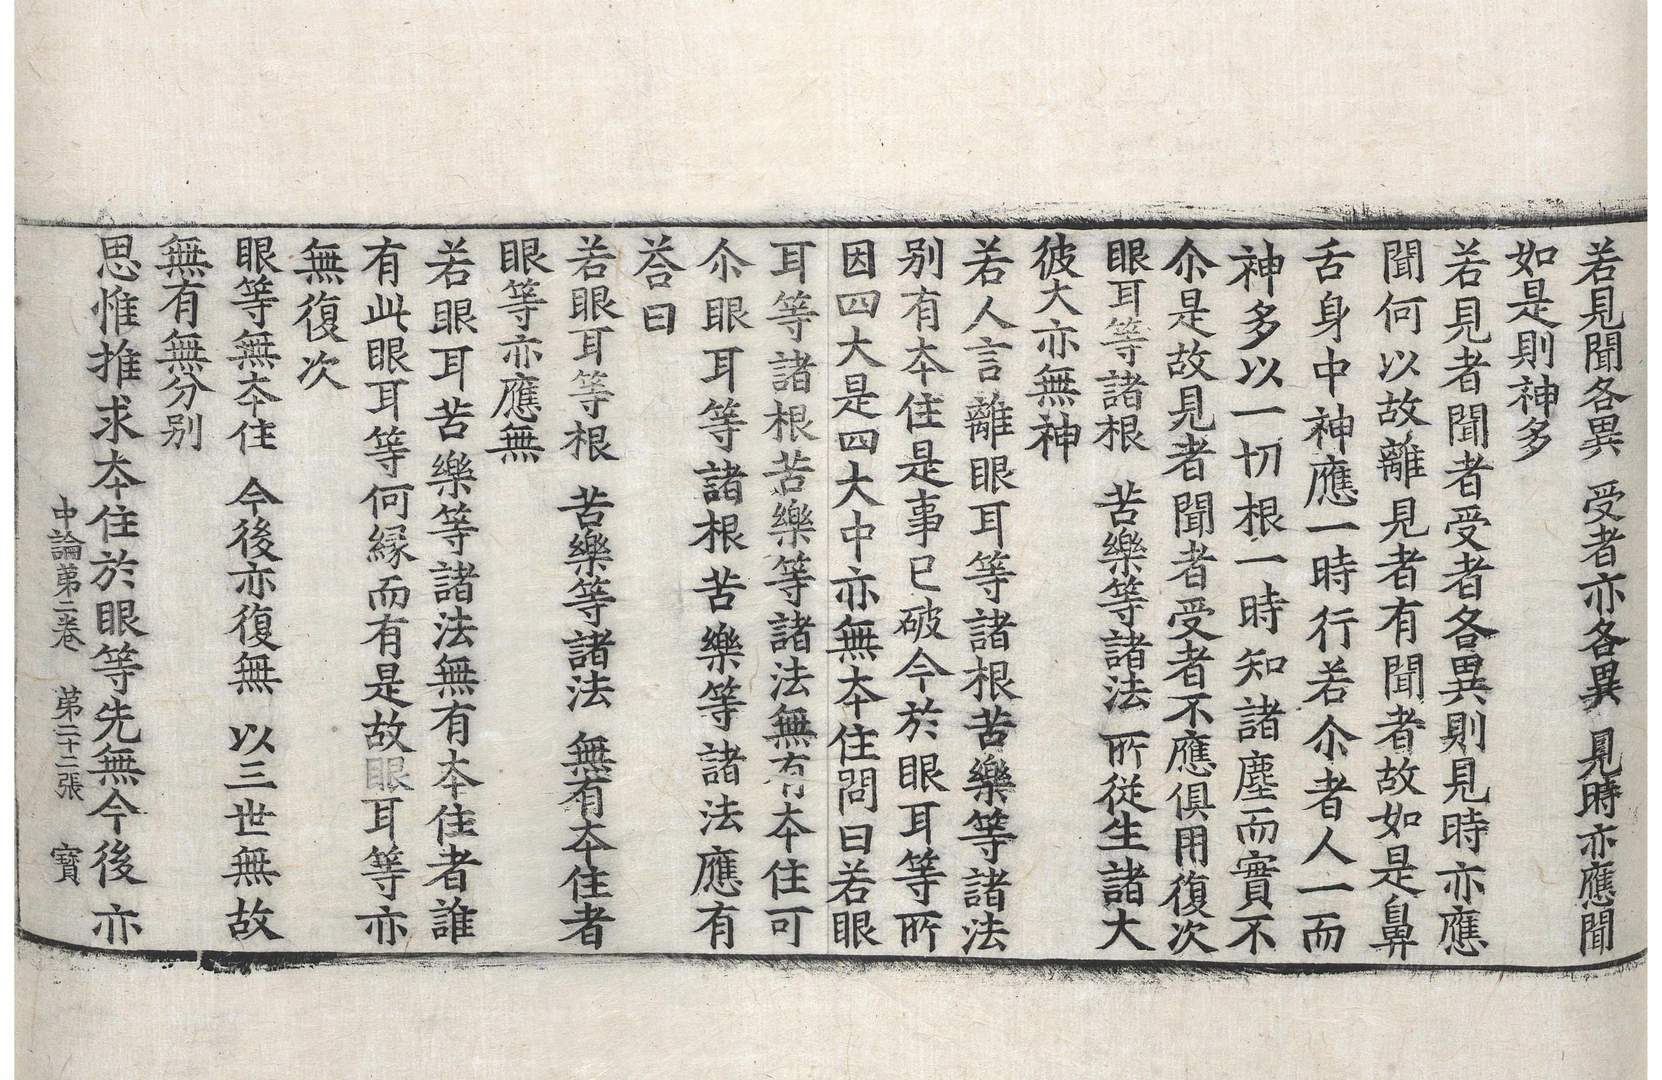 若見聞各異 受者亦各異 見時亦應聞
如是則神多
若見者聞者受者各異則見時亦應
聞何以故離見者有聞者故如是鼻
舌身中神應一時行若尒者人一而
神多以一切根一時知諸塵而實不
尒是故見者聞者受者不應俱用復次
眼耳等諸根 苦樂等諸法 所從生諸大
彼大亦無神
若人言離眼耳等諸根苦樂等諸法
别有夲住是事已破今於眼耳等所
因四大是四大中亦無夲住問曰若眼
耳等諸根苦樂等諸法無有夲住可
尒眼耳等諸根苦樂等諸法應有
荅曰
若眼耳等根 苦樂等諸法 無有夲住者
眼等亦應無
若眼耳苦樂等諸法無有夲住者誰
有此眼耳等何縁而有是故眼耳等亦
無復次
眼等無夲住 今後亦復無 以三世無故
無有無分别
思惟推求夲住於眼等先無今後亦
中論苐二卷 第二十二張 寳